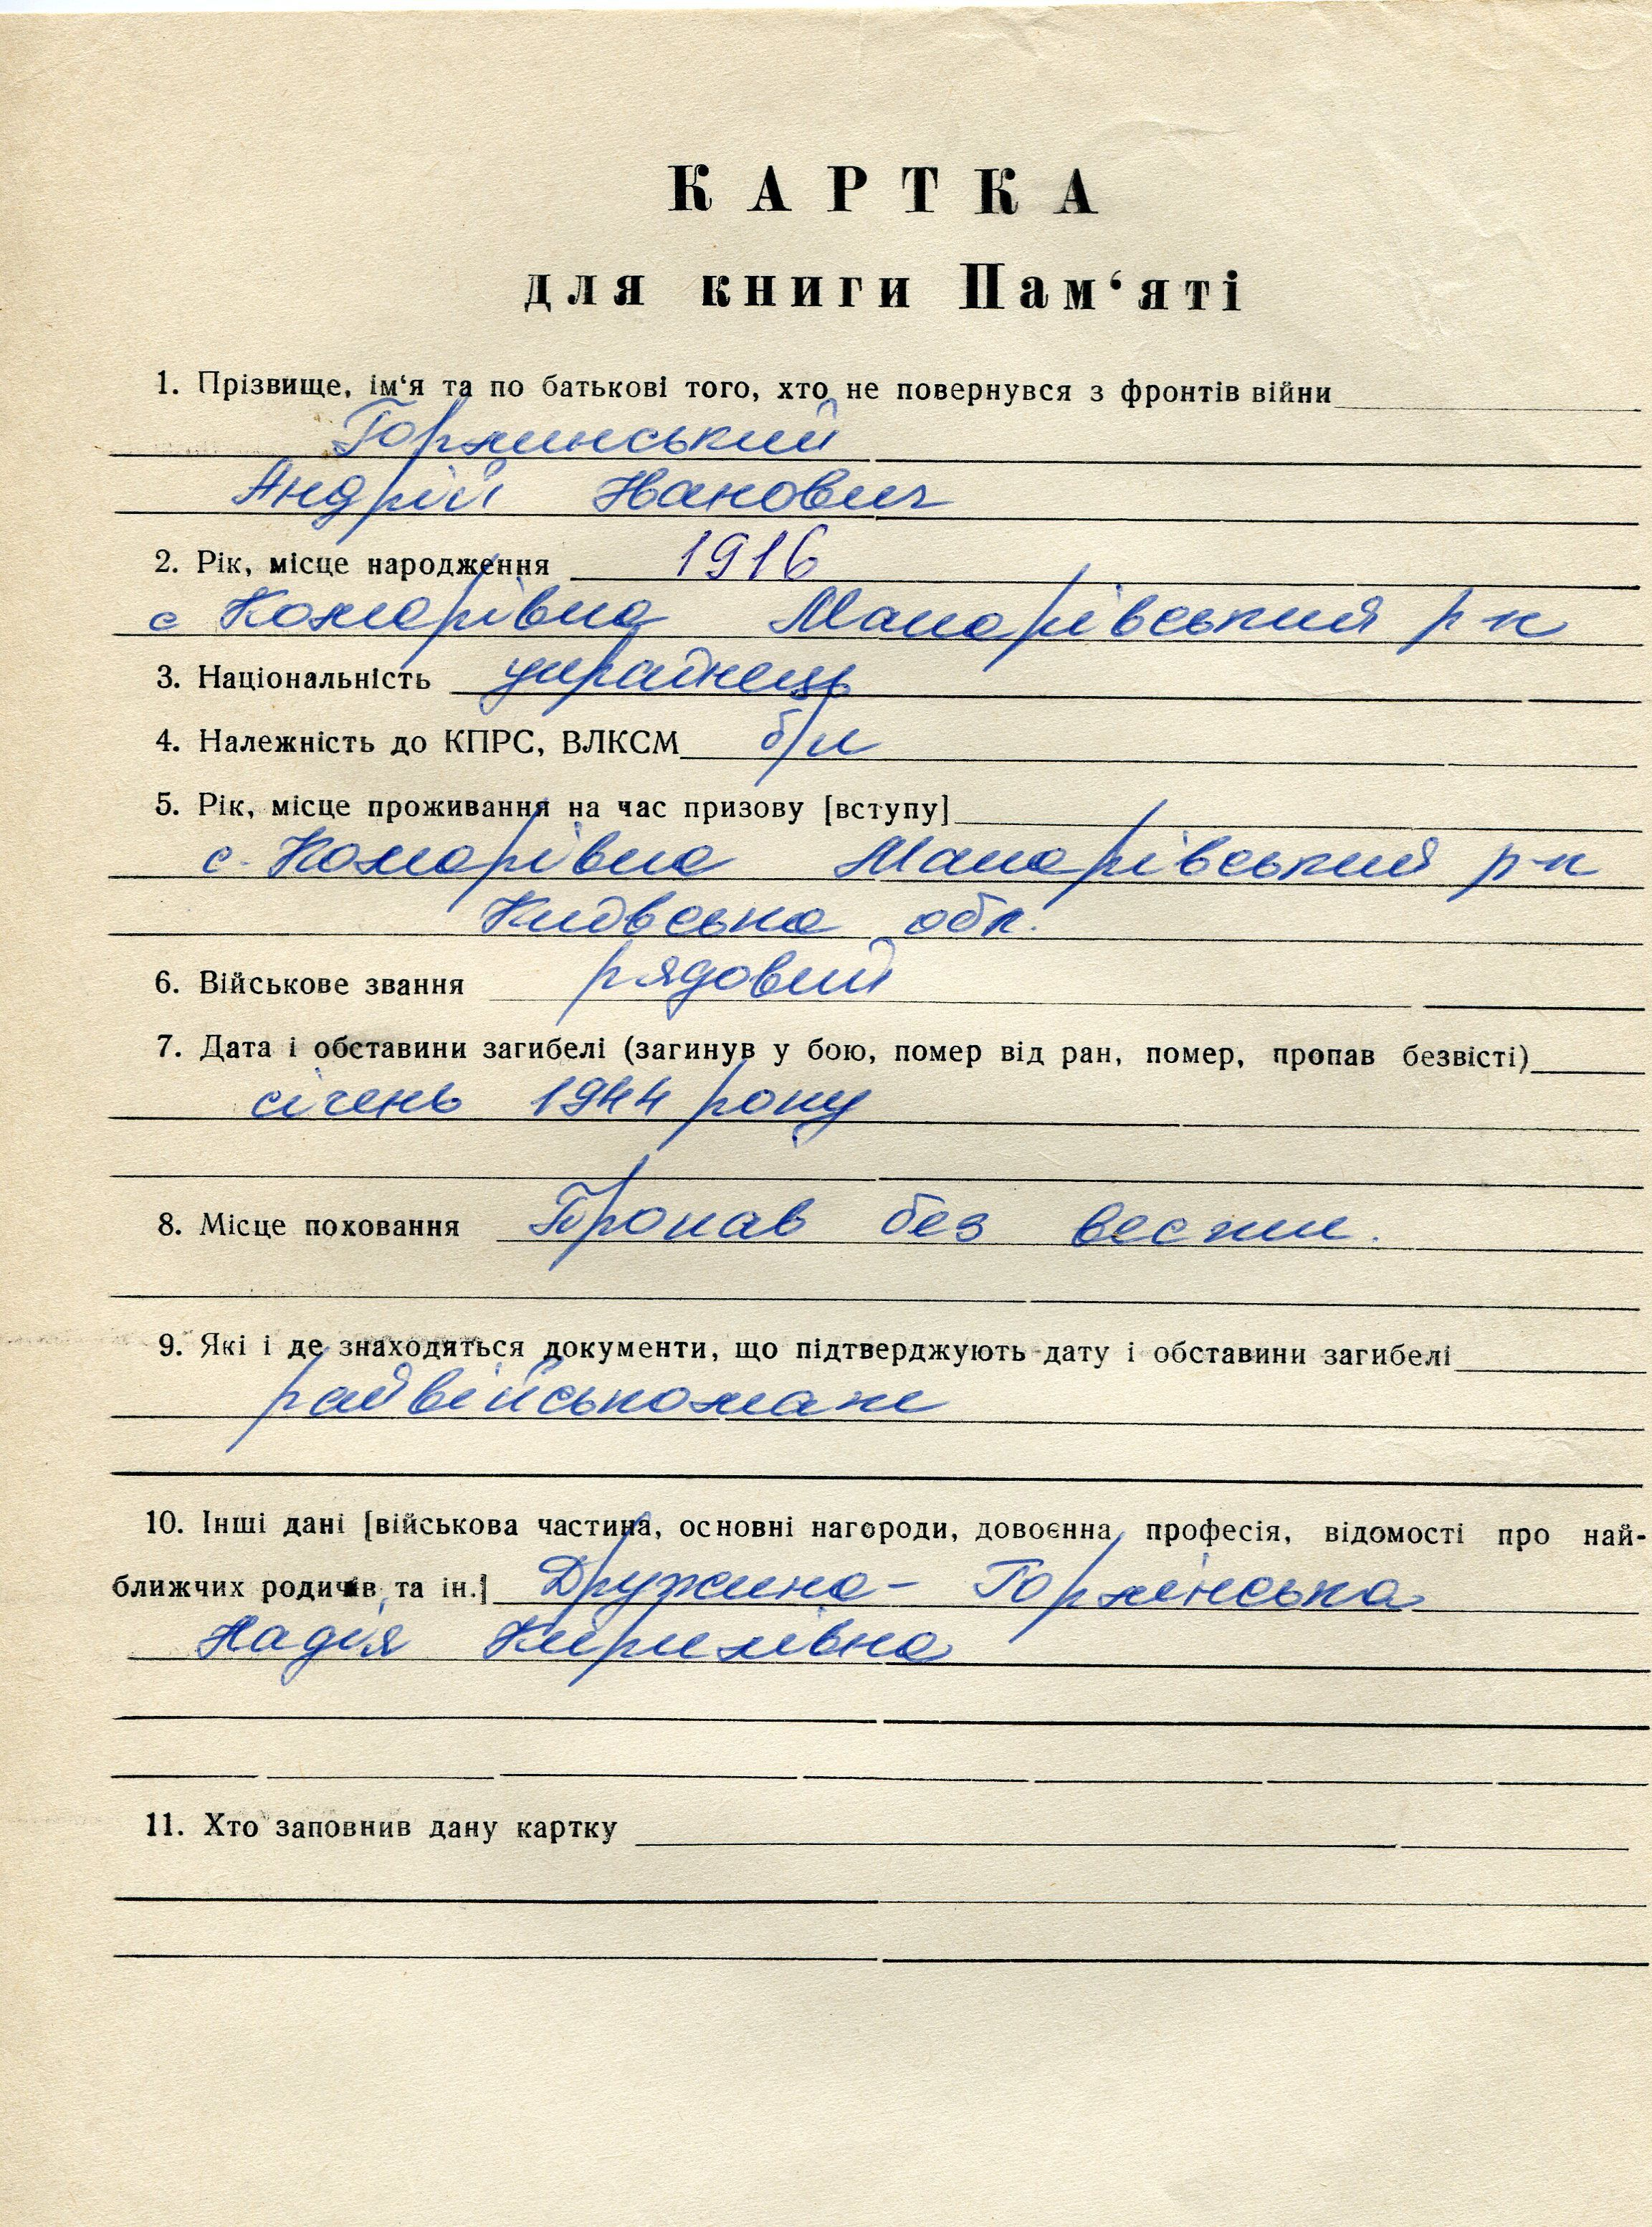 КАРТКА
для книги Пам‘яті
1. Прізвище, ім‘я та по батькові того, хто не повернувся з фронтів війни
Горлинський
Андрій Іванович
2. Рік, місце народження 1916
с Комарівка Макарівський р-н
3. Національність українець
4. Належність до КПРС, ВЛКСМ б/п
5. Рік, місце проживання на час призову [вступу]
с. Комарівка Макарівський р-н
Київська обл.
6. Військове звання рядовий
7. Дата і обставини загибелі (загинув у бою, помер від ран, помер, пропав безвісті)
січень 1944 року
8. Місце поховання Пропав без вести.
9. Які і де знаходяться документи, що підтверджують дату і обставини загибелі
райвійськомат
10. Інші дані [військова частина, основні нагороди, довоєнна професія, відомості про най-
ближчих родичів та ін.] Дружина - Горлінська
Надія Кирилівна
11. Хто заповнив дану картку